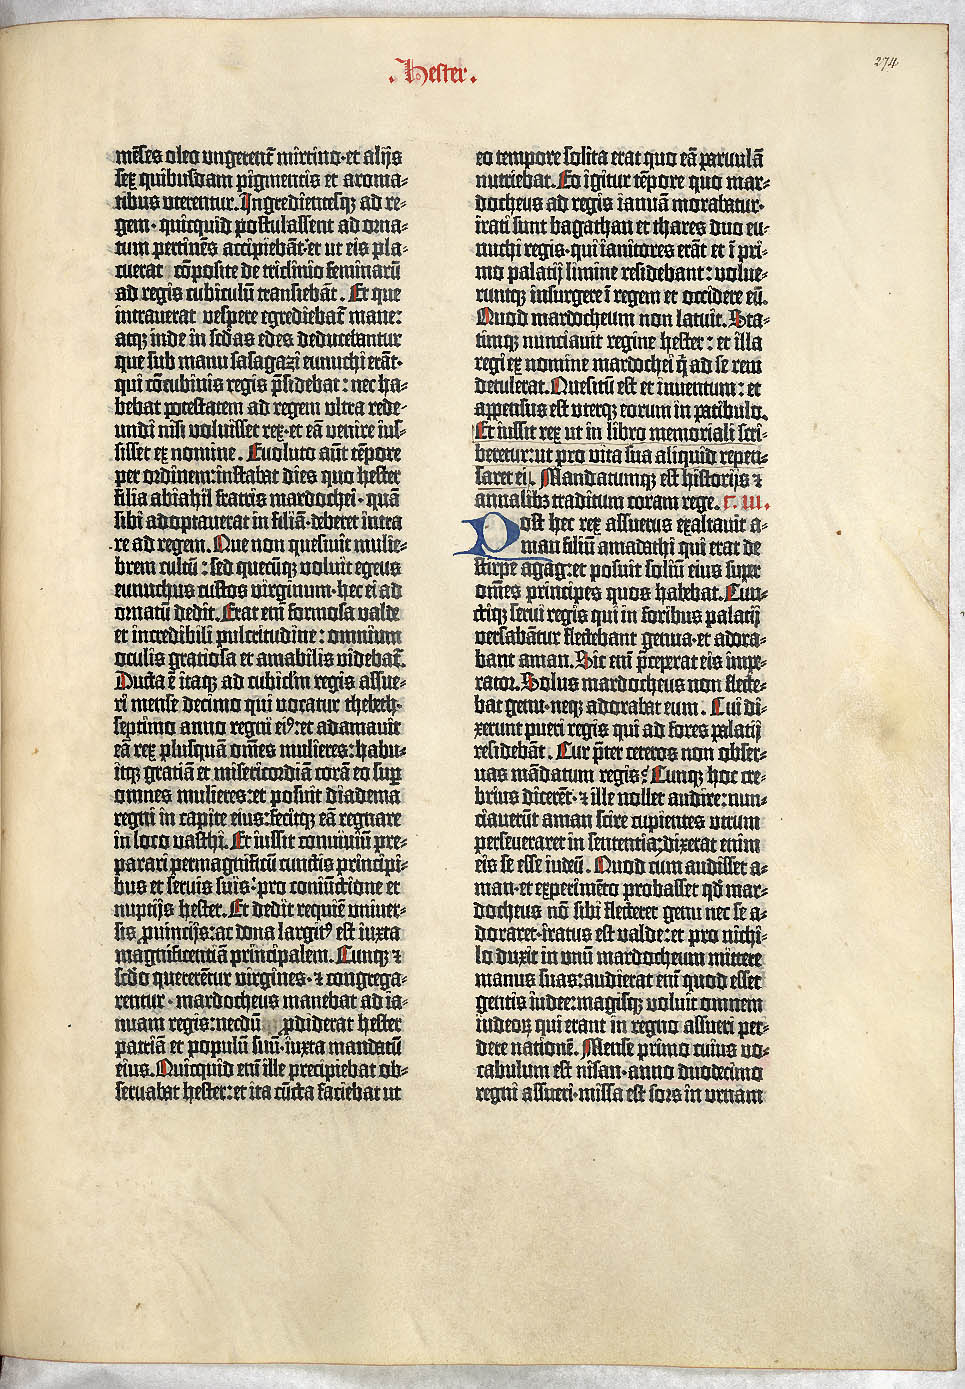 .Hester.
274
mēses oleo ungerent̄ mirtino·et alijs
sex quibusdam pigmentis et aroma-
tibus uterentur. Ingredientesq; ad re-
gem· quicquid postulassent ad orna-
tum pertinēs accipiebāt·et ut eis pla-
cuerat cōposite de triclinio feminarū
ad regis cubiculū transiebāt. Et que
intrauerat vespere egrediebat̄ mane:
atq; inde in scd̄as edes deducebantur
que sub manu sasagazi eunuchi erāt·
qui cōcubinis regis p̄sidebat: nec ha-
bebat potestatem ad regem ultra rede-
undi nisi voluisset rex·et eā venire ius-
sisset ex nomine. Euoluto aūt tēpore
per ordinem:instabat dies quo hester
filia abiahil fratris mardochei·quā
sibi adoptauerat in filiā·deberet intra
re ad regem. Que non quesiuit mulie-
brem cultū: sed quecūq; voluit egeus
eunuchus custos virginum·hec ei ad
ornatū dedit. Erat em̄ formosa valde
et incredibili pulcritudine: omnium
oculis gratiosa et amabilis videbat̄.
Ducta ē itaq; ad cubiclm̄ regis assue-
ri mense decimo qui vocatur thebeth·
septimo anno regni eiꝰ:et adamauit
eā rex plusquā om̄es mulieres: habu-
itq; gratiā et misericordiā corā eo sup̄
omnes mulieres:et posuit diadema
regni in capite eius:fecitq; eā regnare
in loco vasthi. Et iussit conuiuiū pre-
parari permagnificū cunctis principi-
bus et seruis suis:pro coniūctione et
nuptijs hester. Et dedit requiē univer-
sis ꝓuincijs:ac dona largitꝰ est iuxta
magnificentiā principalem. Cunq; ⁊
scd̄o quererētur virgines·⁊ congrega-
rentur·mardocheus manebat ad ia-
nuam regis:necdū ꝓdiderat hester
patriā et populū suū·iuxta mandatū
eius. Quicquid em̄ ille precipiebat ob-
seruabat hester:et ita cūcta faciebat ut
eo tempore solita erat quo eā paruulā
nutriebat. Eo igitur tēpore quo mar-
docheus ad regis ianuā morabatur·
irati sunt bagathan et thares duo eu-
nuchi regis·qui ianitores erāt et ī pri-
mo palatij limine residebant: volue-
runtq; insurgere ī regem et occidere eū.
Quod mardocheum non latuit. Sta-
timq; nunciauit regine hester: et illa
regi ex nomine mardochei q̄ ad se rem
detulerat. Quesitū est et inuentum: et
appensus est uterq; eorum in patibulo.
Et iussit rex ut in libro memoriali scri-
beretur:ut pro vita sua aliquid repeti-
saret ei. Mandatumq; est historijs ⁊
annalib; traditum coram rege. c. III.
Post hec rex assuerus exaltauit a-
man filiū amadathi qui erat de
stirpe agag:et posuit soliū eius super
om̄es principes quos habebat. Cun-
ctiq; serui regis qui in foribus palatij
versabātur flectebant genua·et adora-
bant aman. Sic em̄ p̄ceperat eis impe-
rator. Solus mardocheus non flecte-
bat genu·neq; adorabat eum. Cui di-
xerunt pueri regis qui ad fores palatij
residebāt. Cur p̄ter ceteros non obser-
uas mādatum regis? Cunq; hoc cre-
brius dicerēt·⁊ ille nollet audire:nun-
ciauerūt aman scire cupientes utrum
perseueraret in sententia:dixerat enim
eis se esse iudeū. Quod cum audisset a-
man·et experimēto probasset qd̄ mar-
docheus nō sibi flecteret genu nec se a-
doraret·iratus est valde:et pro nichi-
lo duxit in unū mardocheum mittere
manus suas:audierat em̄ quod esset
gentis iudee:magisq; voluit omnem
iudeoꝝ qui erant in regno assueri per-
dere nationē. Mense primo cuius vo-
cabulum est nisan·anno duodecimo
regni assueri·missa est sors in urnam